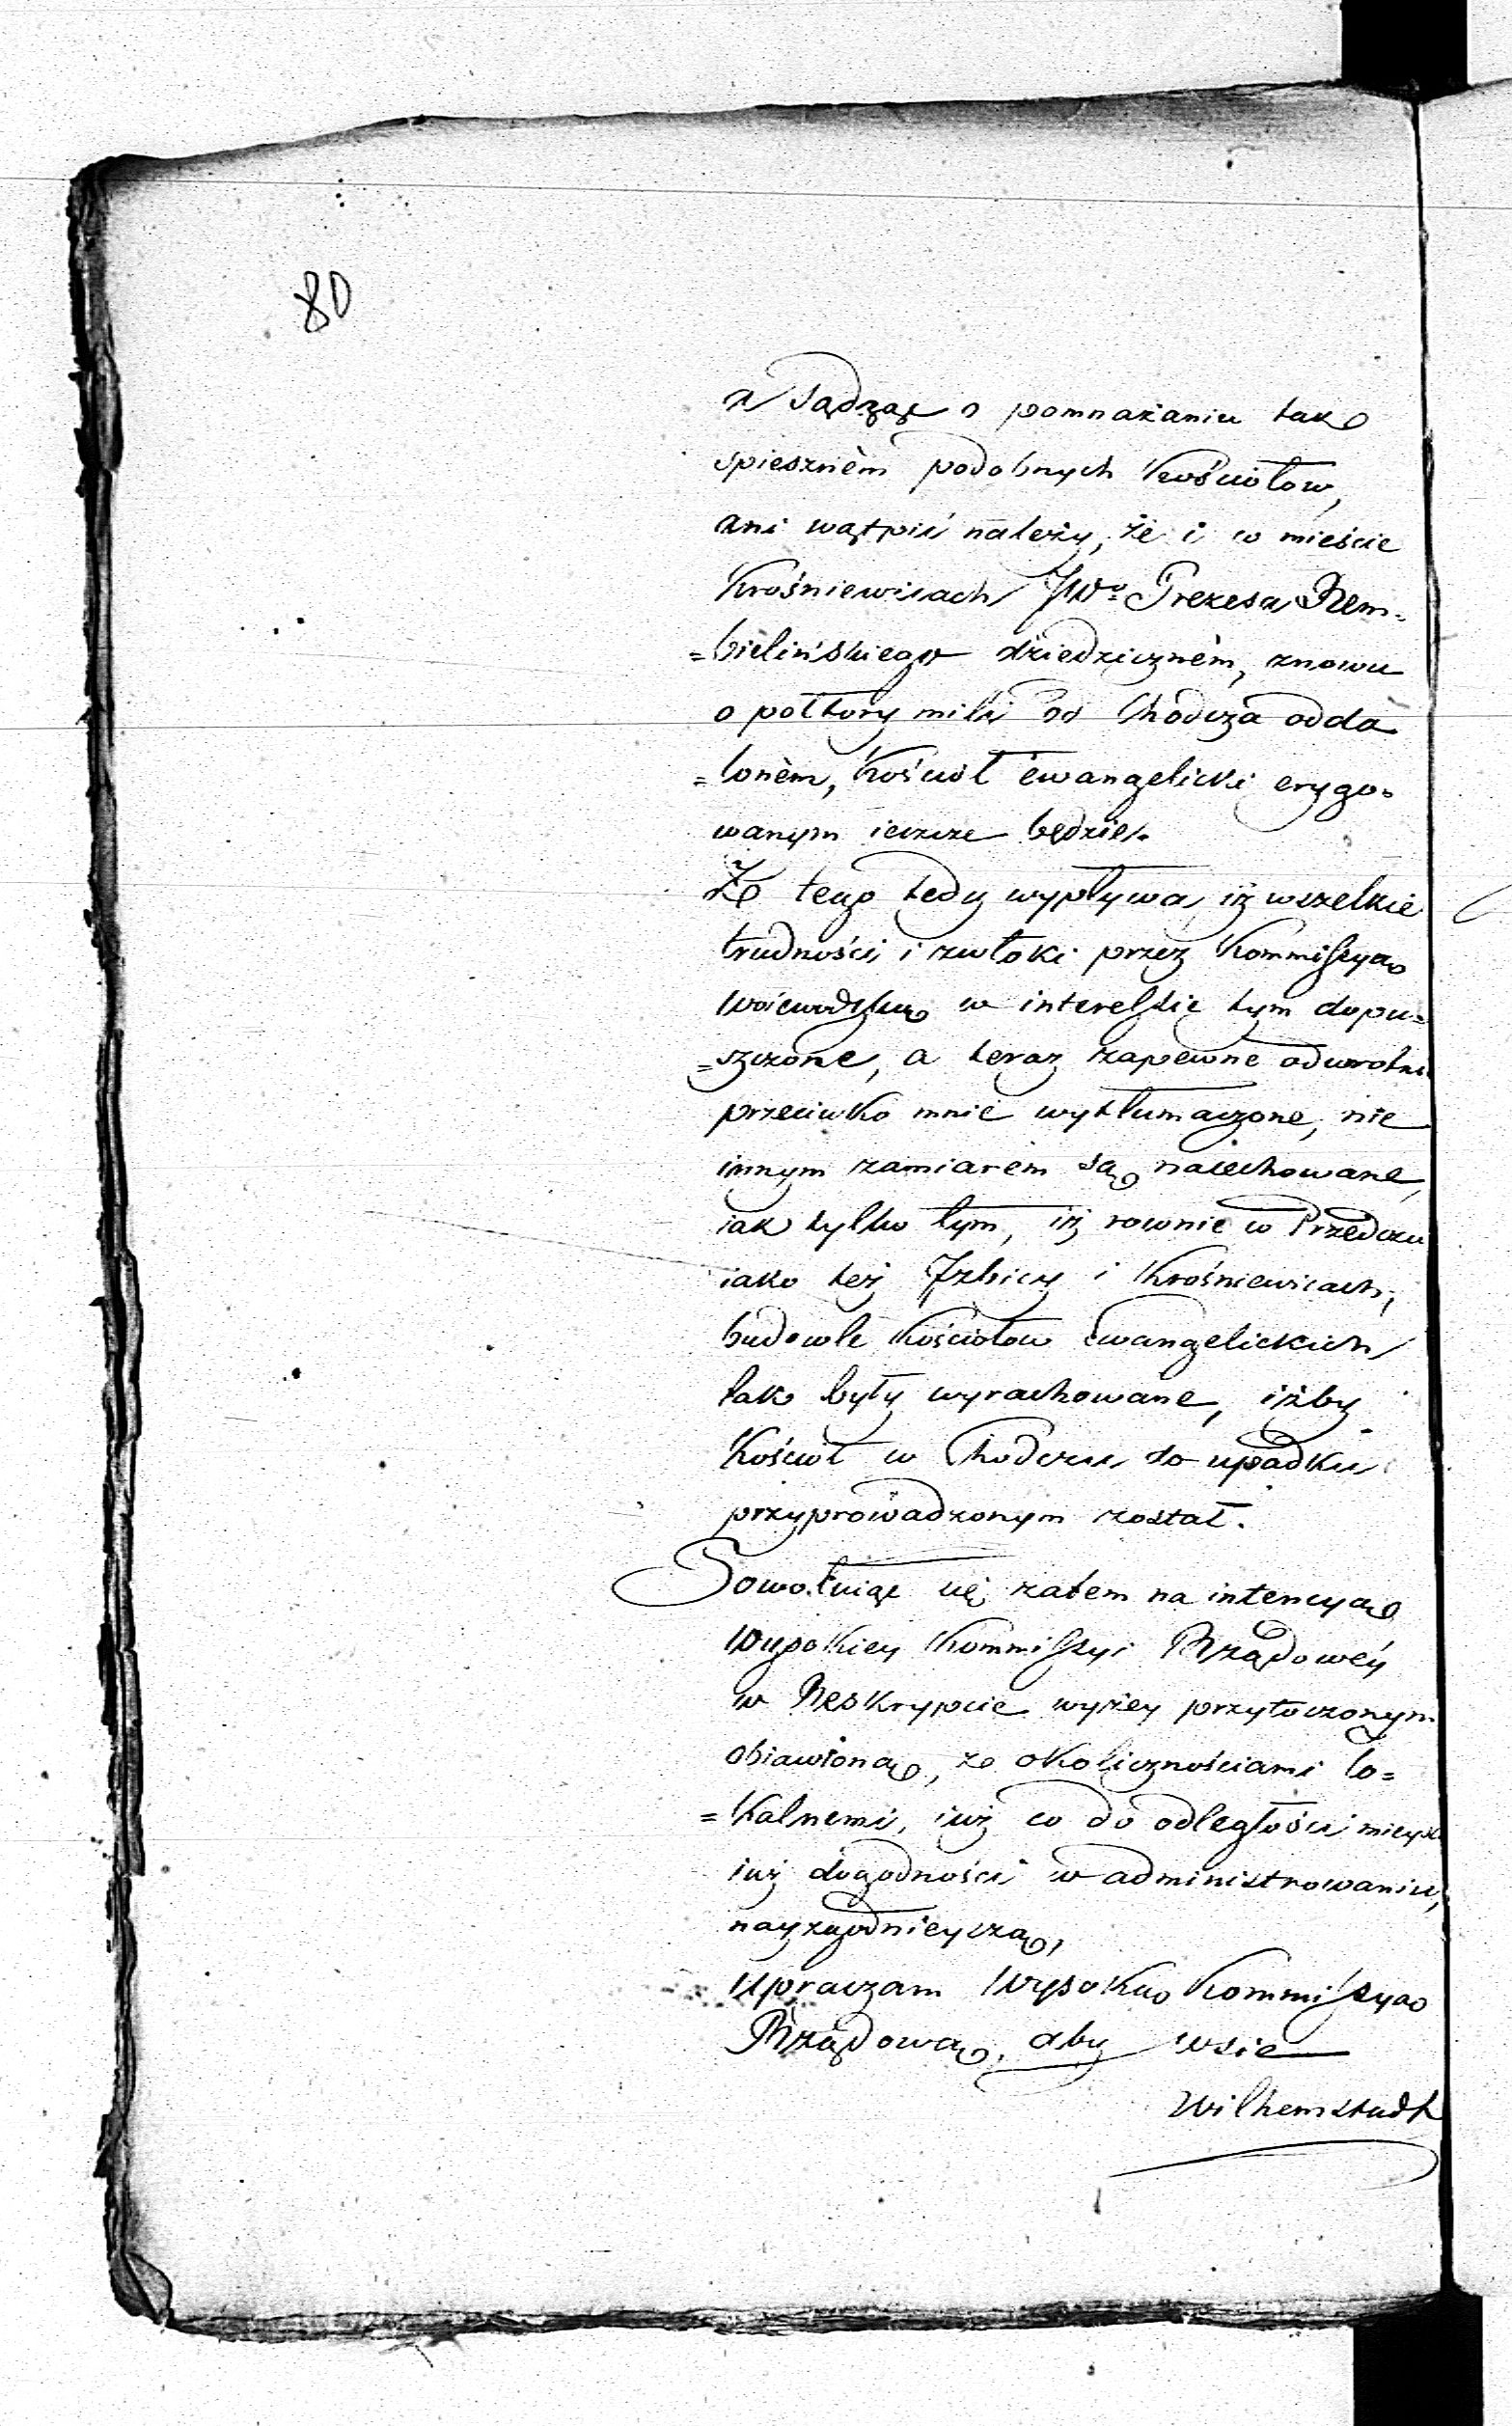 80
a sądząc o pomnażaniu tak
spiesznèm podobnych kościołow,
ani wątpić należy, że i w mieście
Krośniewicach JWo Prezesa Rem=
=bielińskiego dziedzicznèm, znowu
o połtory mili od Chodcza odda
=lonèm, Kościoł ewangelicki erygo=
wanym ieszcze będzie.
Ze tego tedy wypływa, iż wszelkie
trudności i zwłoki przez Kommissyą
Woiewodzką w interessie tym dopu=
=szczone, a teraz zapewne odwrotni
przeciwko mnie wytłumaczone, nie
innym zamiarem są nacechowane,
iak tylko tym, iż rownie w Przedczu
iako też Izbicy i Krośniewicach,
budowle Kościołow Ewangelickich
tak były wyrachowane, iżby
Kościoł w Chodczu do upadku
przyprowadzonym został.
Powołuiąc się zatem na intencyą
Wysokiey Kommissyi Rządowéy
w Reskrypcie wyżey przytoczonym
obiawioną, ze okolicznościami lo=
=kalnemi, iuż co do odległości mieysc
iuż dogodności w administrowaniu,
nayzgodnieyszą,
upraszam Wysoką Kommissyą
Rządową, aby wsie
Wilhemstadt